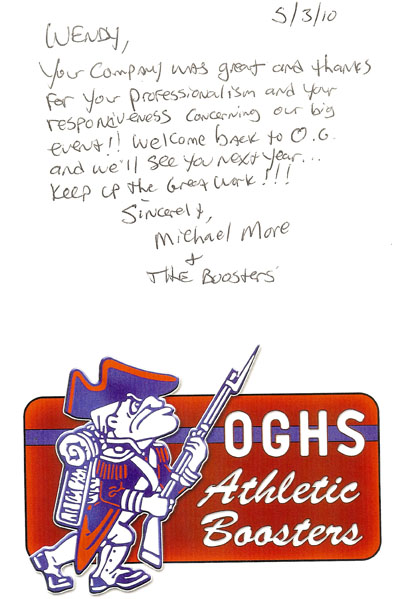 5/3/10
WENDY,
Your Company was great and thanks
for your professionalism and your
responsiveness concerning our big
event!! Welcome back to O.G.
and we'll see you next year...
Keep up the Great work!!!
Sincerely,
Michael More
+
THE Boosters
OGHS
Athletic
Boosters